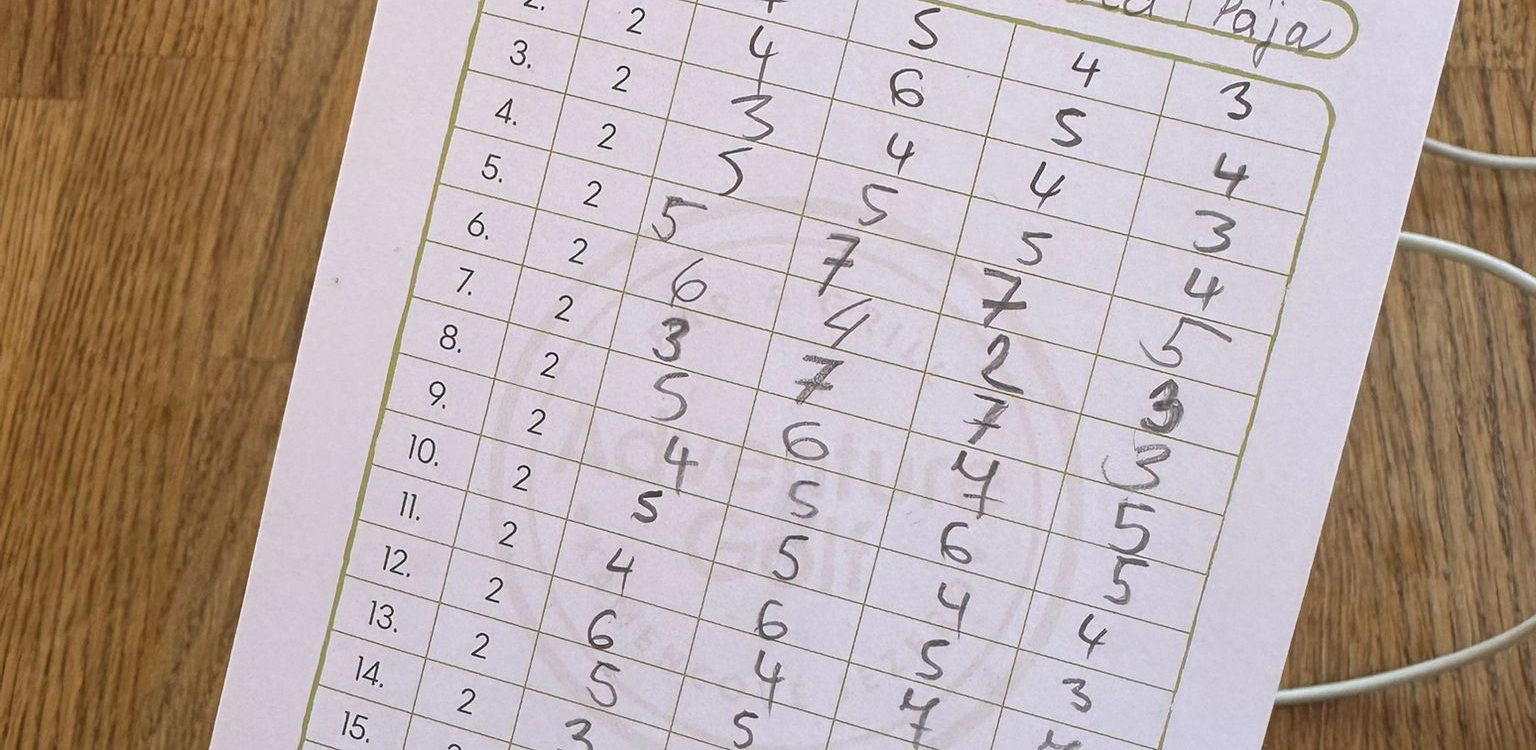 Paja
5 4 3
2. 2 4 6 5 4
3. 2 3 4 4 3
4. 2 5 5 5 4
5. 2 5 7 7 5
6. 2 6 4 2 3
7. 2 3 7 7 3
8. 2 5 6 4 5
9. 2 4 5 6 5
10. 2 5 5 4 4
11. 2 4 6 5 3
12. 2 6 4
13. 2 5 5
14. 2 3
15.